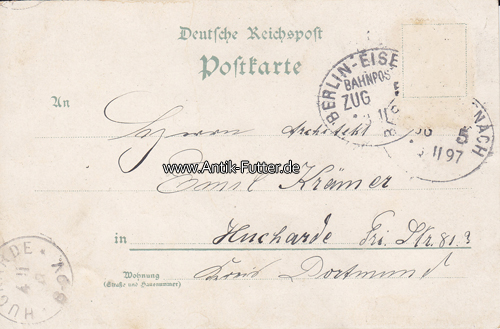 Deutsche Reichspost
Postkarte
BERLIN-EISE
BAHNPOST
ZUG
11
NACH
11 97
An
Herrn Architekt
www.Antik-Futter.de
Emil Krämer
in Huckarde Fri. Str. 81.
Kreis Dortmund
Wohnung
(Straße und Hausnummer)
HUCKARDE
4 11